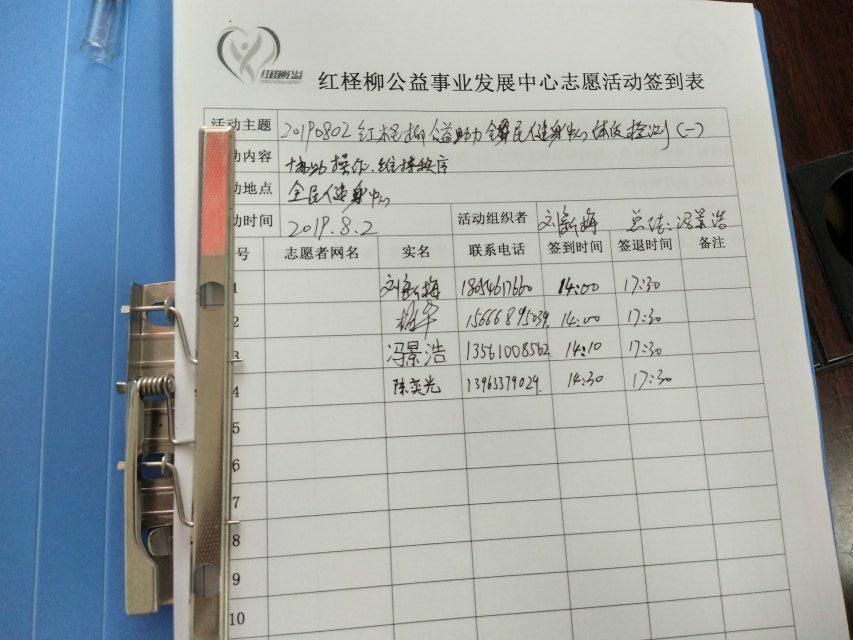 红柽柳公益
红柽柳公益事业发展中心志愿活动签到表
活动主题 20190802红柽柳公益助力全民健身中心体质检测(一)
动内容 协助操作、维持秩序
动地点 全民健身中心
动时间 2019.8.2 活动组织者 刘新梅 总结:冯景浩
号 志愿者网名 实名 联系电话 签到时间 签退时间 备注
1 刘新梅 18654617660 14:00 17:30
2 15666895039 14:00 17:30
3 冯景浩 13561008562 14:10 17:30
4 陈奕光 13963379029. 14:30 17:30
5
6
7
8
9
10